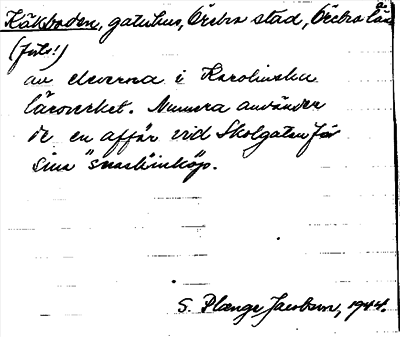 Käkboden, gatuhus, Örebro stad, Örebro län
(forts!)
av eleverna i Karolinska
läroverket. Numera använder
de en affär vid Skolgatan för
sina "snaskinköp.
S. Plænge Jacobson, 1944.